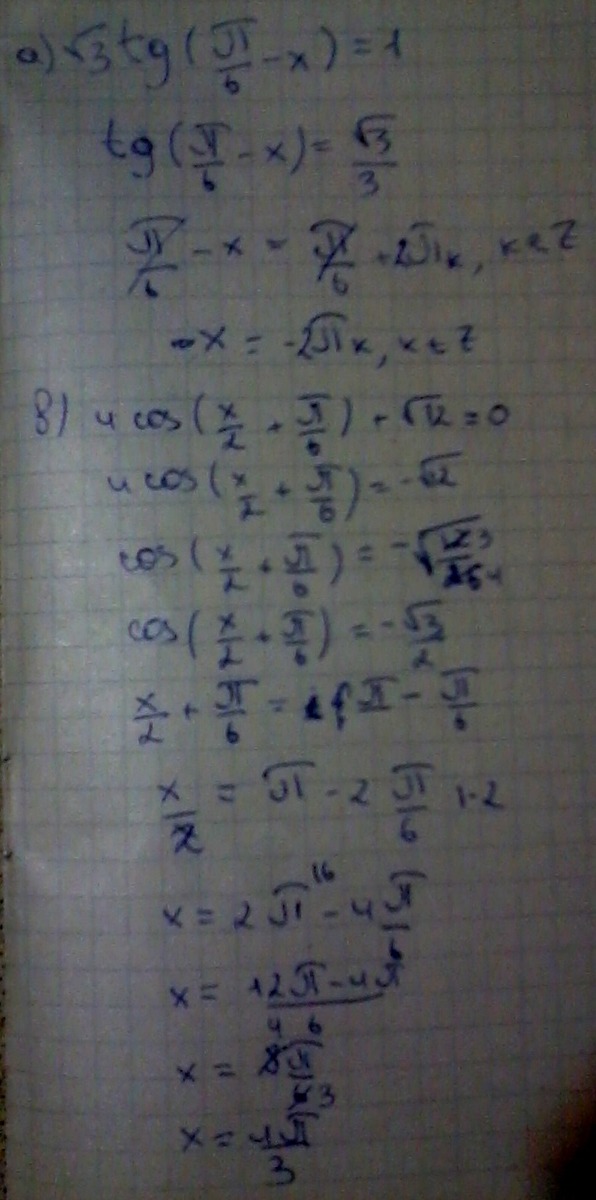 а) √3 tg(π/6 - x) = 1
tg(π/6 - x) = √3/3
π/6 - x = π/6 + 2πk, k ∈ Z
-x = -2πk, k ∈ Z
в) 4 cos(x/2 + π/6) + √12 = 0
4 cos(x/2 + π/6) = -√12
cos(x/2 + π/6) = -√(12/16)
cos(x/2 + π/6) = -√3/2
x/2 + π/6 = π - π/6
x/2 = π - 2 π/6 | · 2
x = 2π - 4π/6
x = 12π - 4π / 6
x = 8π/6
x = 4π/3